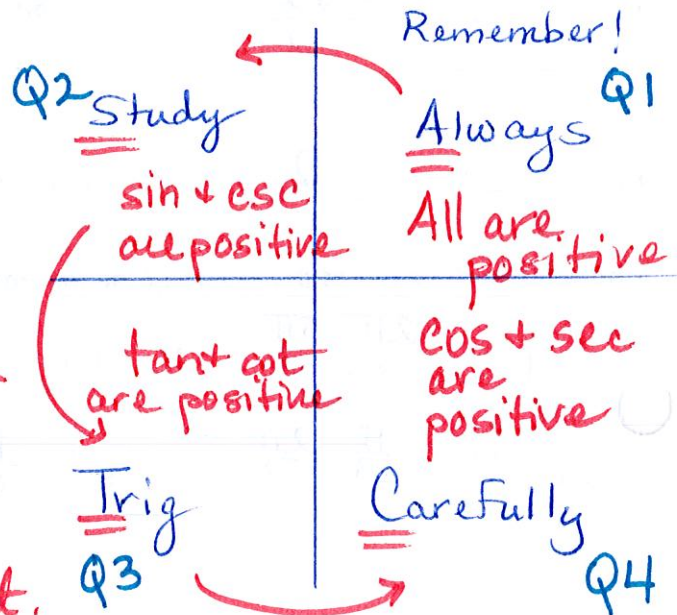 Remember!
Q2
Q1
Study
Always
sin + csc
are positive
All are
positive
tan + cot
are positive
cos + sec
are
positive
Trig
Carefully
Q3
Q4